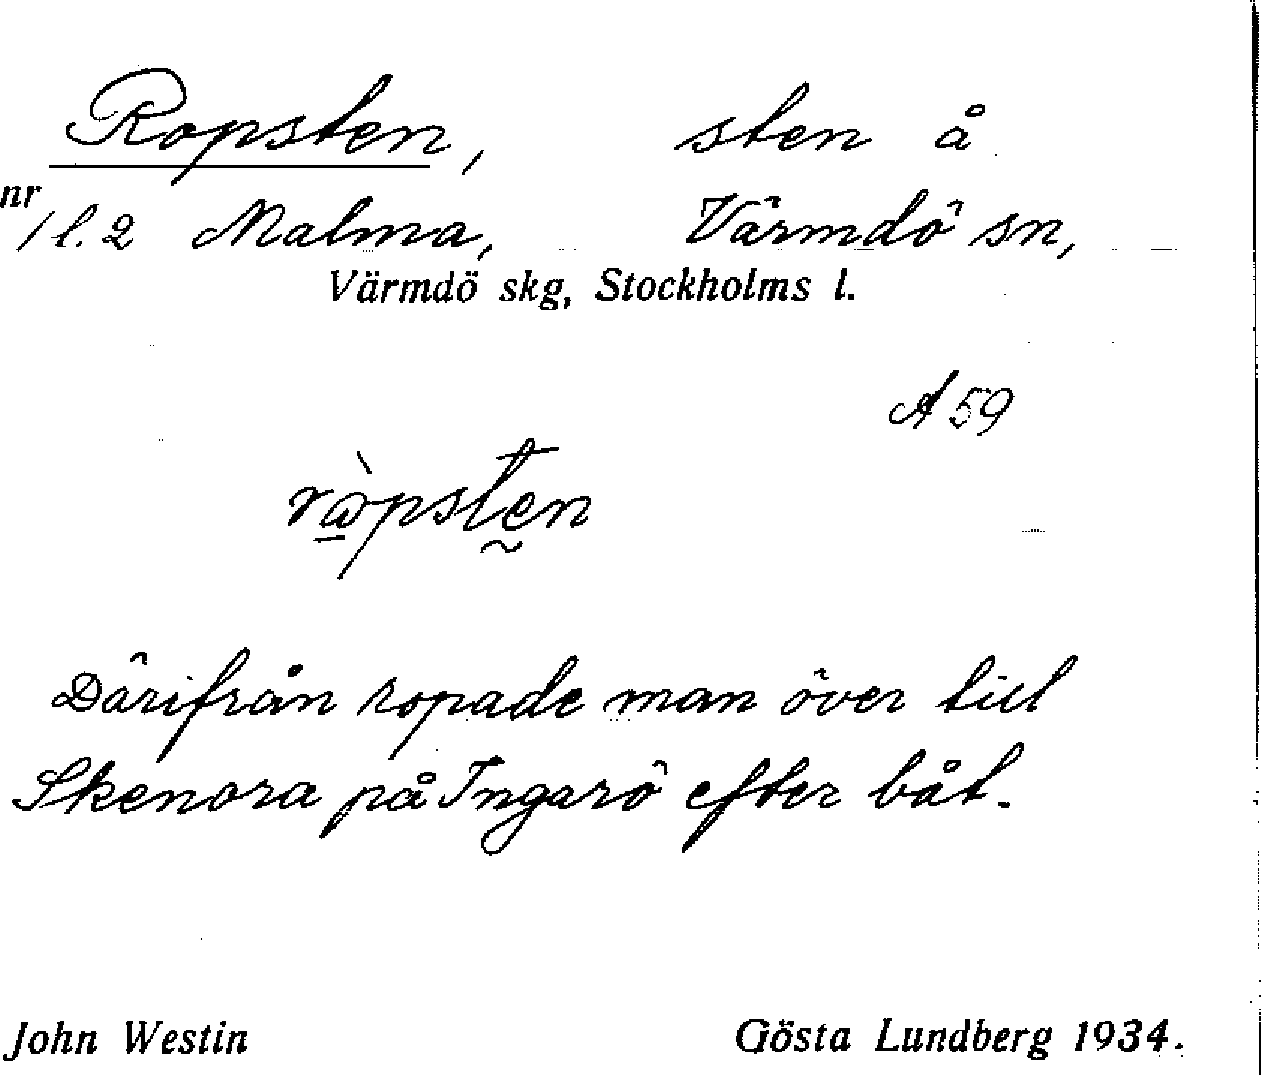 Ropsten, sten å
nr
1 l. 2 Malma, Värmdö sn,
Värmdö skg, Stockholms l.
A 59
ròpsten
Därifrån ropade man över till
Skenora på Ingarö efter båt.
John Westin Gösta Lundberg 1934.